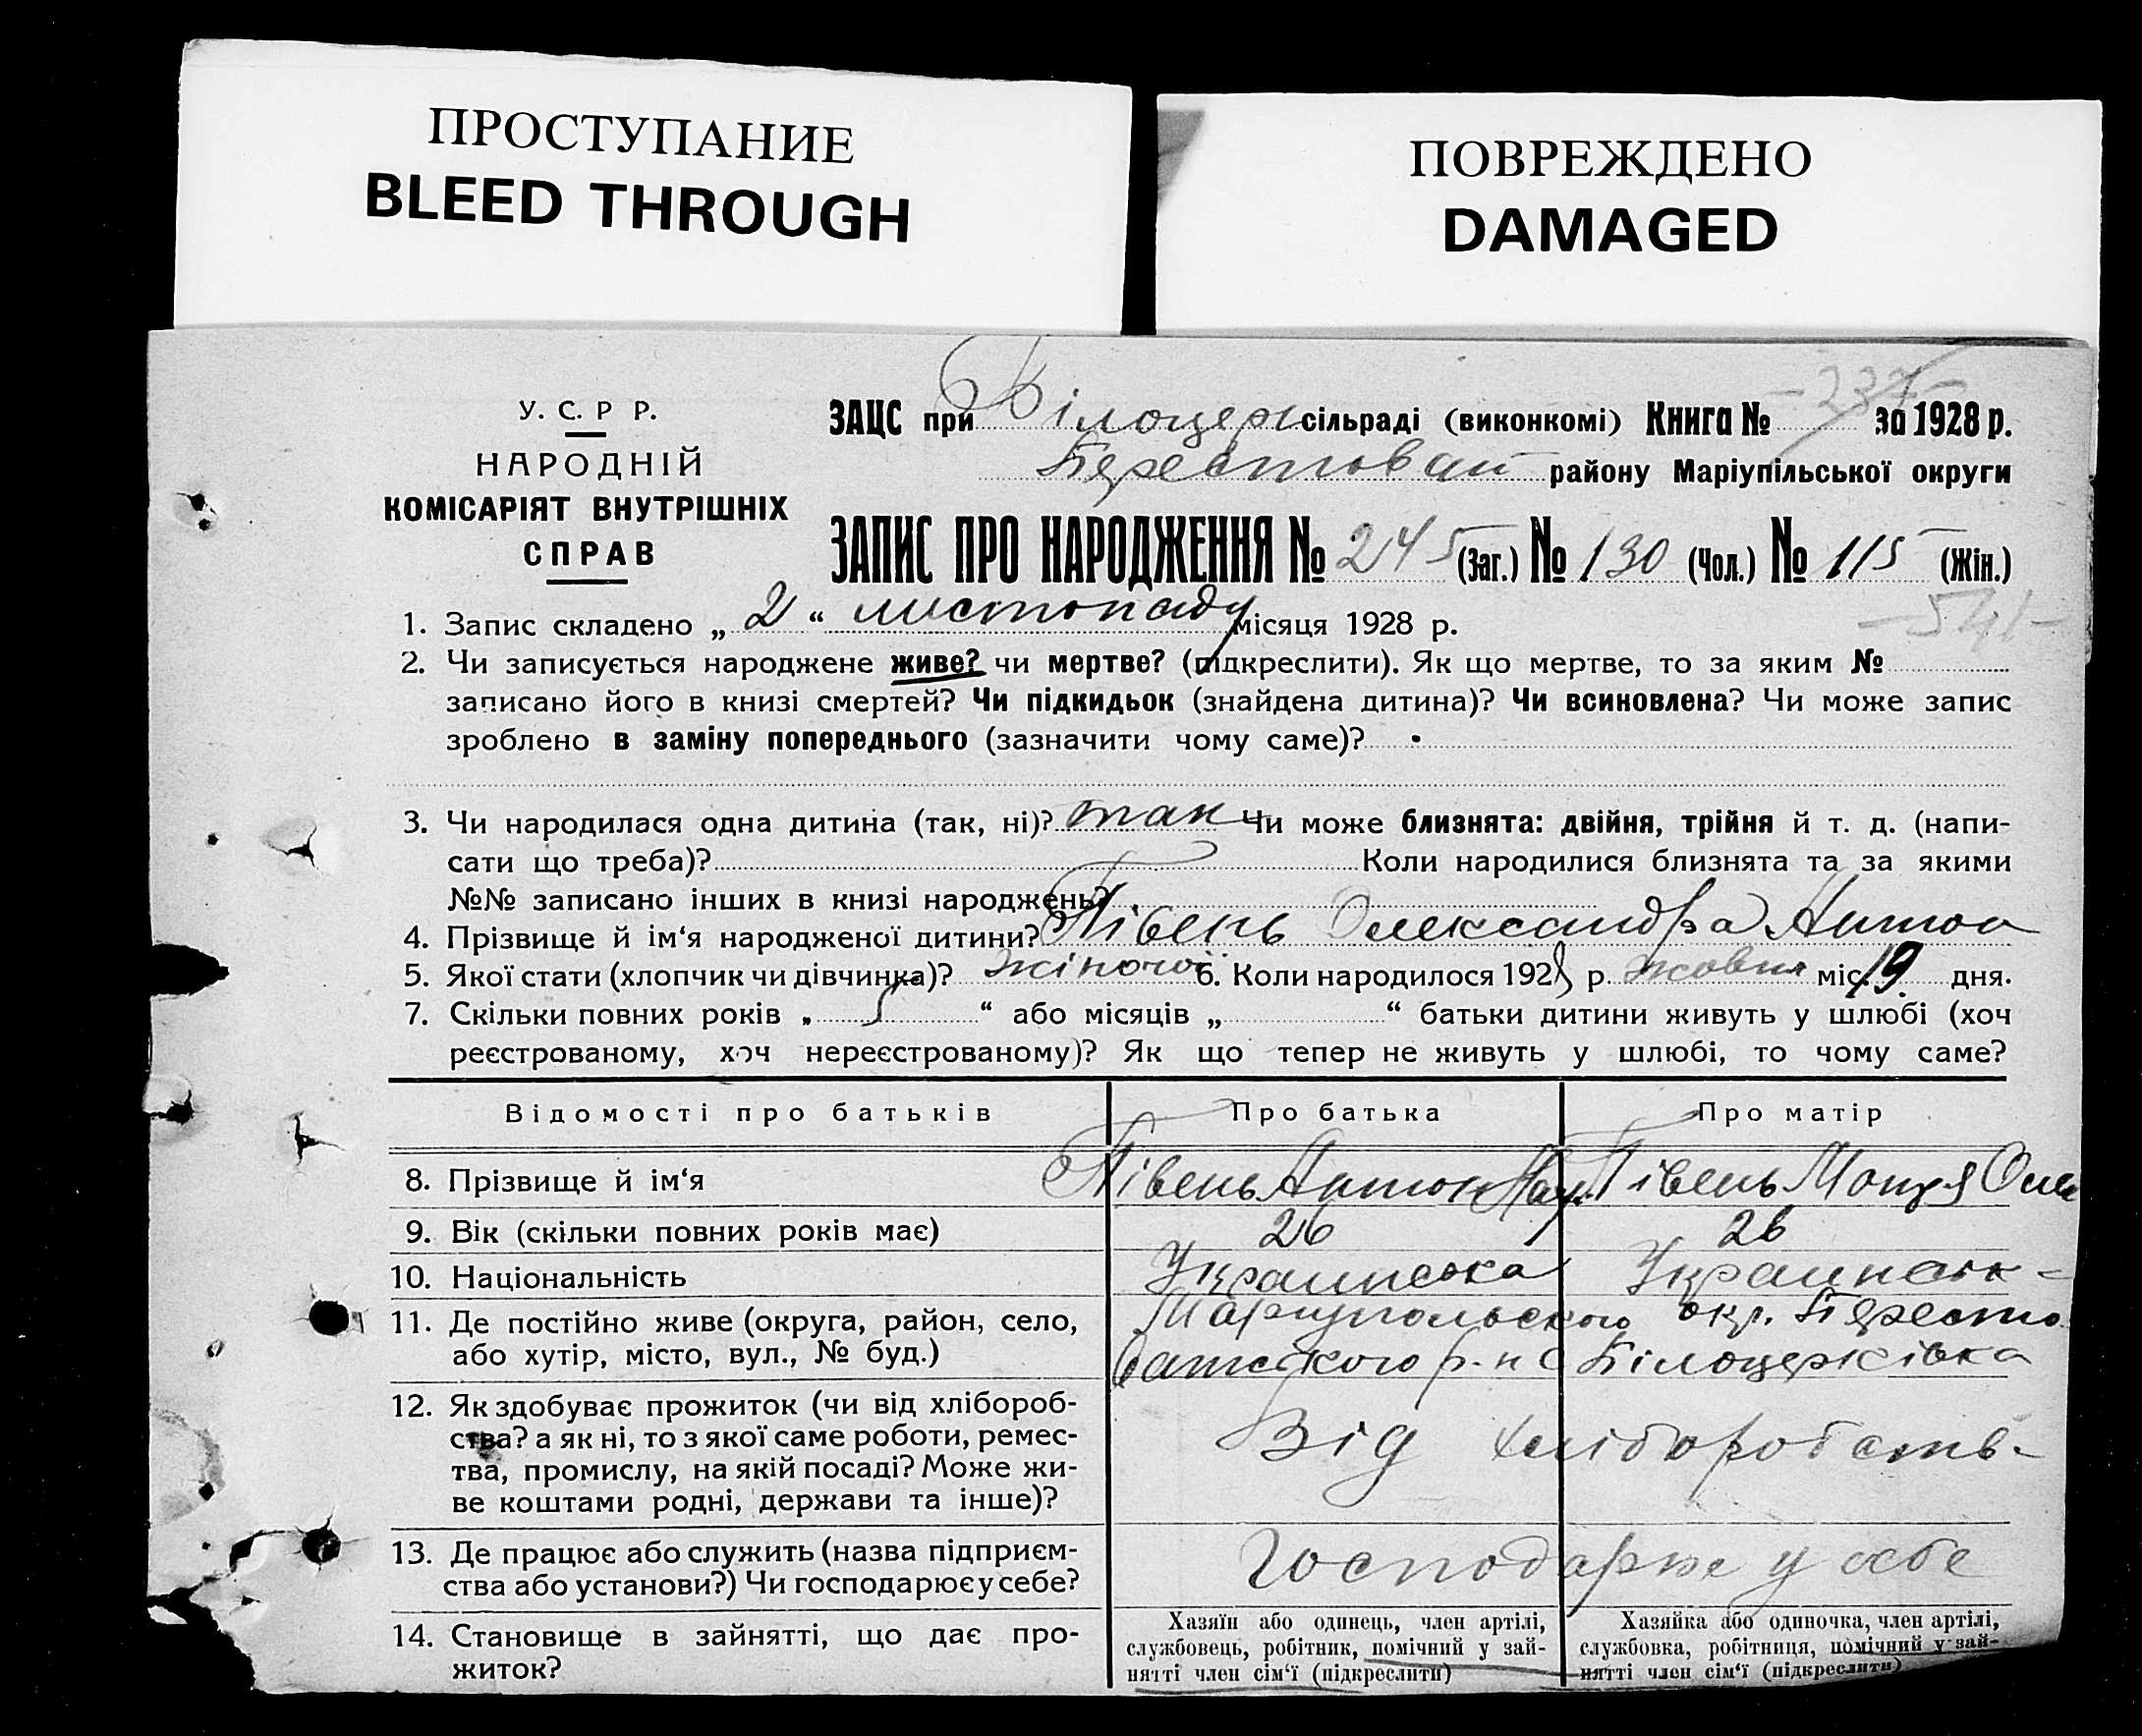 ПРОСТУПАНИЕ
BLEED THROUGH
ПОВРЕЖДЕНО
DAMAGED
У. С. Р Р.
НАРОДНІЙ
КОМІСАРІЯТ ВНУТРІШНІХ
СПРАВ
- 237 -
ЗАЦС при Білоцерк сільраді (виконкомі) Книга № за 1928 р.
Берестован району Маріупільської округи
ЗАПИС ПРО НАРОДЖЕННЯ № 245 (Заг.) № 130 (Чол.) № 115 (Жін.)
1. Запис складено „ 2 “ листопаду місяця 1928 р.
- 541 -
2. Чи записується народжене живе? чи мертве? (підкреслити). Як що мертве, то за яким №
записано його в книзі смертей? Чи підкидьок (знайдена дитина)? Чи всиновлена? Чи може запис
зроблено в заміну попереднього (зазначити чому саме)?
3. Чи народилася одна дитина (так, ні)? так Чи може близнята: двійня, трійня й т. д. (напи-
сати що треба)? Коли народилися близнята та за якими
№№ записано інших в книзі народжень?
4. Прізвище й ім‘я народженої дитини? Півень Олександра Антон
5. Якої стати (хлопчик чи дівчинка)? жіночої 6. Коли народилося 1928 р. жовтня міс. 19 дня.
7. Скільки повних років „ 5 “ або місяців „ “ батьки дитини живуть у шлюбі (хоч
реєстрованому, хоч нереєстрованому)? Як що тепер не живуть у шлюбі, то чому саме?
Відомості про батьків Про батька Про матір
8. Прізвище й ім‘я Півень Антон Нау. Півень Мотря Олек
9. Вік (скільки повних років має) 26 26
10. Національність Украинська Украинськ
11. Де постійно живе (округа, район, село, Маріупольского окр. Бересто
або хутір, місто, вул., № буд.) ватского р-н С Білоцерківка
12. Як здобуває прожиток (чи від хлібороб-
ства? а як ні, то з якої саме роботи, ремес- Від хліборобств
тва, промислу, на якій посаді? Може жи-
ве коштами родні, держави та інше)?
13. Де працює або служить (назва підприєм- Господарює у себе
ства або установи?) Чи господарює у себе?
14. Становище в зайнятті, що дає про-
житок?
Хазяїн або одинець, член артілі,
службовець, робітник, помічний у зай-
нятті член сім‘ї (підкреслити)
Хазяйка або одиночка, член артілі,
службовка, робітниця, помічний у зай-
нятті член сім‘ї (підкреслити)